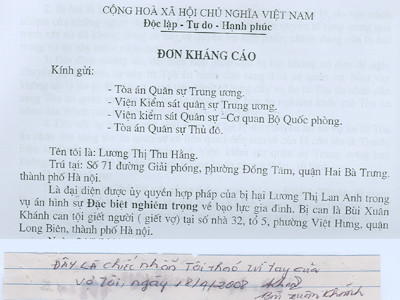 CỘNG HOÀ XÃ HỘI CHỦ NGHĨA VIỆT NAM
Độc lập - Tự do - Hạnh phúc
ĐƠN KHÁNG CÁO
Kính gửi:
- Tòa án Quân sự Trung ương.
- Viện Kiểm sát quân sự Trung ương.
- viện kiểm sát Quân sự –Cơ quan Bộ Quốc phòng.
- Tòa án Quân sự Thủ đô.
Tên tôi là: Lương Thị Thu Hằng.
Trú tại: Số 71 đường Giải phóng, phường Đồng Tâm, quận Hai Bà Trưng,
thành phố Hà nội.
Là đại diện được ủy quyền hợp pháp của bị hại Lương Thị Lan Anh trong
vụ án hình sự Đặc biệt nghiêm trọng về bạo lực gia đình. Bị can là Bùi Xuân
Khánh can tội giết người ( giết vợ) tại số nhà 32, tổ 5, phường Việt Hưng, quận
Long Biên, thành phố Hà nội.
ĐÂY LÀ chiếc nhẫn Tôi tháo từ tay của
vợ Tôi, ngày 18/4/2008
Bùi Xuân Khánh